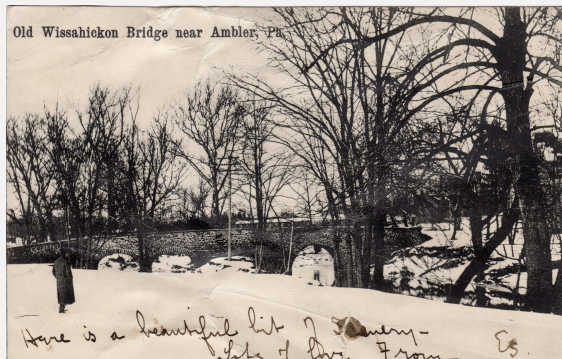 Old Wissahickon Bridge near Ambler, Pa.
Here is a beautiful bit of Scenery-
Lots of love. From